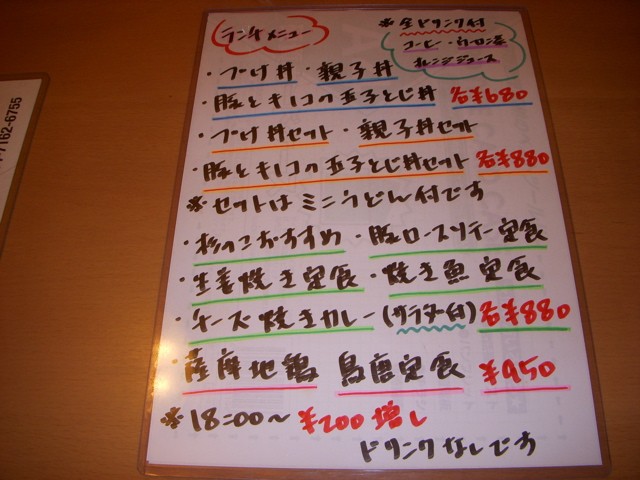 ランチメニュー
※全ドリンク付
コーヒー・ウーロン茶
オレンジジュース
・づけ丼・親子丼
・豚とキノコの玉子とじ丼 各¥680
・づけ丼セット・親子丼セット
・豚とキノコの玉子とじ丼セット 各¥880
※セットはミニうどん付です
・杉っこおすすめ・豚ロースソテー定食
・生姜焼き定食・焼き魚定食
・チーズ焼きカレー(サラダ・台) 各¥880
・薩摩地鶏 鳥唐定食 ¥950
※18:00〜¥200増し
ドリンクなしです
7162-6755